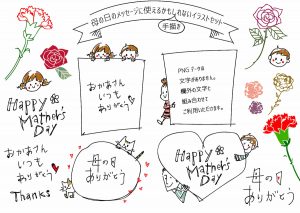 母の日のメッセージに使えるかもしれないイラストセット
手描き
おかあさん
いつも
ありがとう
PNGデータは
文字がありません。
欄外の文字と
組み合わせて
ご利用いただけます。
Happy
Mother's
Day
おかあさん
いつも
ありがとう
Thanks
母の日
ありがとう
Happy
Mother's
Day
母の日
ありがとう